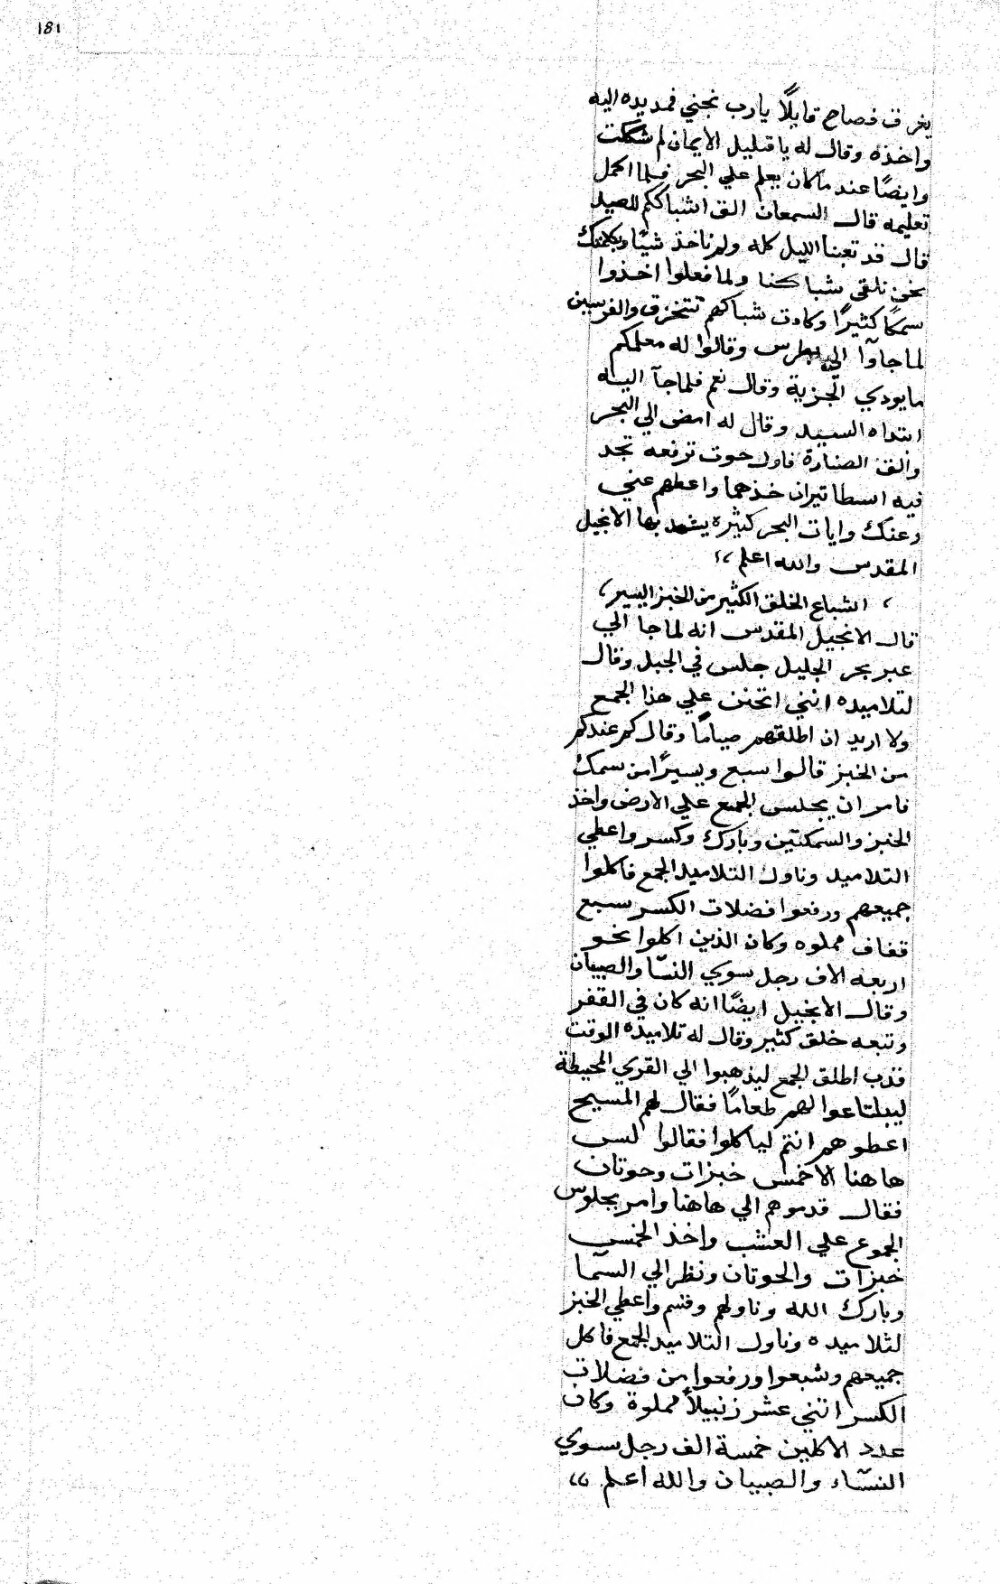 ١٨١
يغرق فصاح قايلًا يارب نجني فمد يده اليه
واخذه وقال له يا قليل الايمان لم شككت
وايضًا عند ماكان يعلم علي البحر فلما اكمل
تعليمه قال السمعان الق اشباككم للصيد
قال قد تعبنا الليل كله ولم ناخذ شيًا وبكلمتك
نحن نلقي شباكنا ولما فعلوا اخذوا
سمكًا كثيرًا وكادت شباكهم تتخرق والفرسين
لما جاوآ الي بطرس وقالوا له معلمكم
ما يودي الجزية وقال نعم فلما جآ اليه
ابتداه السيد وقال له امض الي البحر
والق الصنارة فاول حوت ترفعه تجد
فيه اسطاتيران خذهما واعطهم عني
وعنك وايات البحر كثيره يشهد بها الانجيل
المقدس والله اعلم ،،
، اشباع الخلق الكثير من الخبز اليسير ،
قال الانجيل المقدس انه لما جا الي
عبر بحر الجليل جلس في الجبل وقال
لتلاميده انني اتحنن علي هذا الجمع
ولا اريد ان اطلقهم صيامًا وقال كم عندكم
من الخبز قالوا سبع ويسيرًا من سمك
فامر ان يجلس الجمع علي الارض واخذ
الخبز والسمكتين وبارك وكسر واعطي
التلاميد وناول التلاميد الجمع فاكلوا
جميعهم ورفعوا فضلات الكسر سبع
قفاف مملوه وكان الذين اكلوا نحو
اربعه الاف رجل سوي النسا والصبيان
وقال الانجيل ايضًا انه كان في القفر
وتبعه خلق كثير وقال له تلاميده الوقت
قذب اطلق الجمع ليذهبوا الي القري المحيطة
ليبتاعوا لهم طعامًا فقال لهم المسيح
اعطوهم انتم لياكلوا فقالوا لس
هاهنا الا خمس خبزات وحوتان
فقال قدموهم الي هاهنا وامر بجلوس
الجموع علي العشب واخذ الخمس
خبزات والحوتان ونظر الي السمآ
وبارك الله وناولهم وقسم واعطي الخبز
لتلاميده وناول التلاميد الجمع فاكل
جميعهم وشبعوا ورفعوا من فضلات
الكسر اتني عشر زنبيلًا مملوة وكان
عدد الاكلين خمسة الف رجل سوي
النسآء والصبيان والله اعلم ،،